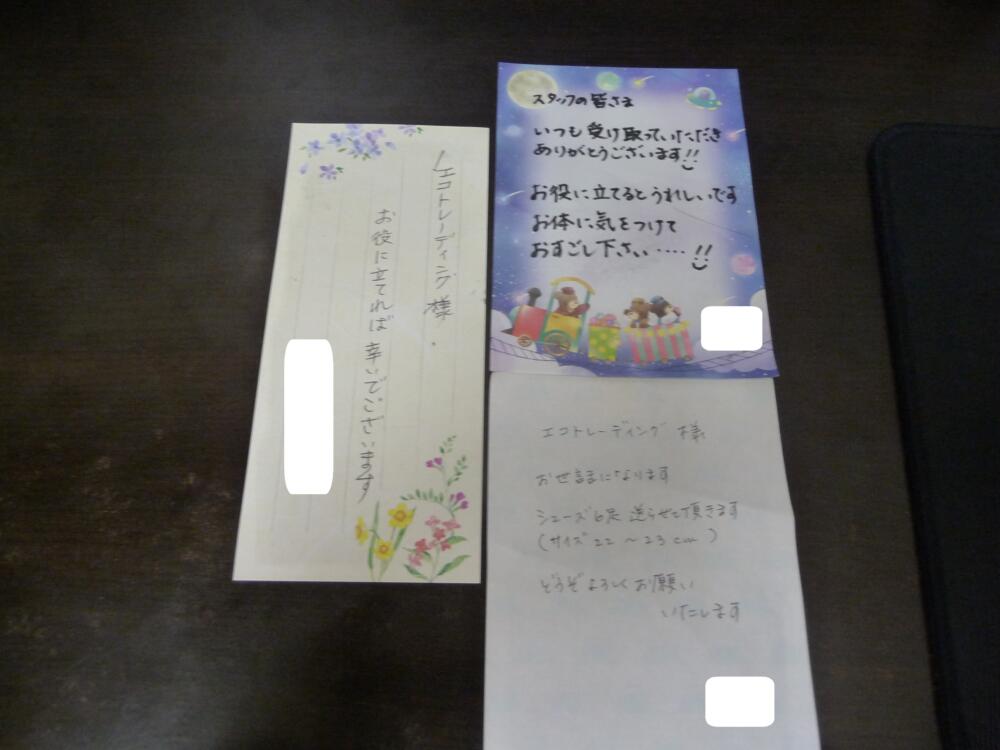 エコトレーディング様
お役に立てれば幸いでございます
スタッフの皆さま
いつも受け取っていただき
ありがとうございます!!
お役に立てるとうれしいです
お体に気をつけて
おすごし下さい‥‥!!
エコトレーディング 様
お世話になります
シューズ6足 送らせて頂きます
(サイズ22～23cm)
どうぞよろしくお願い
いたします